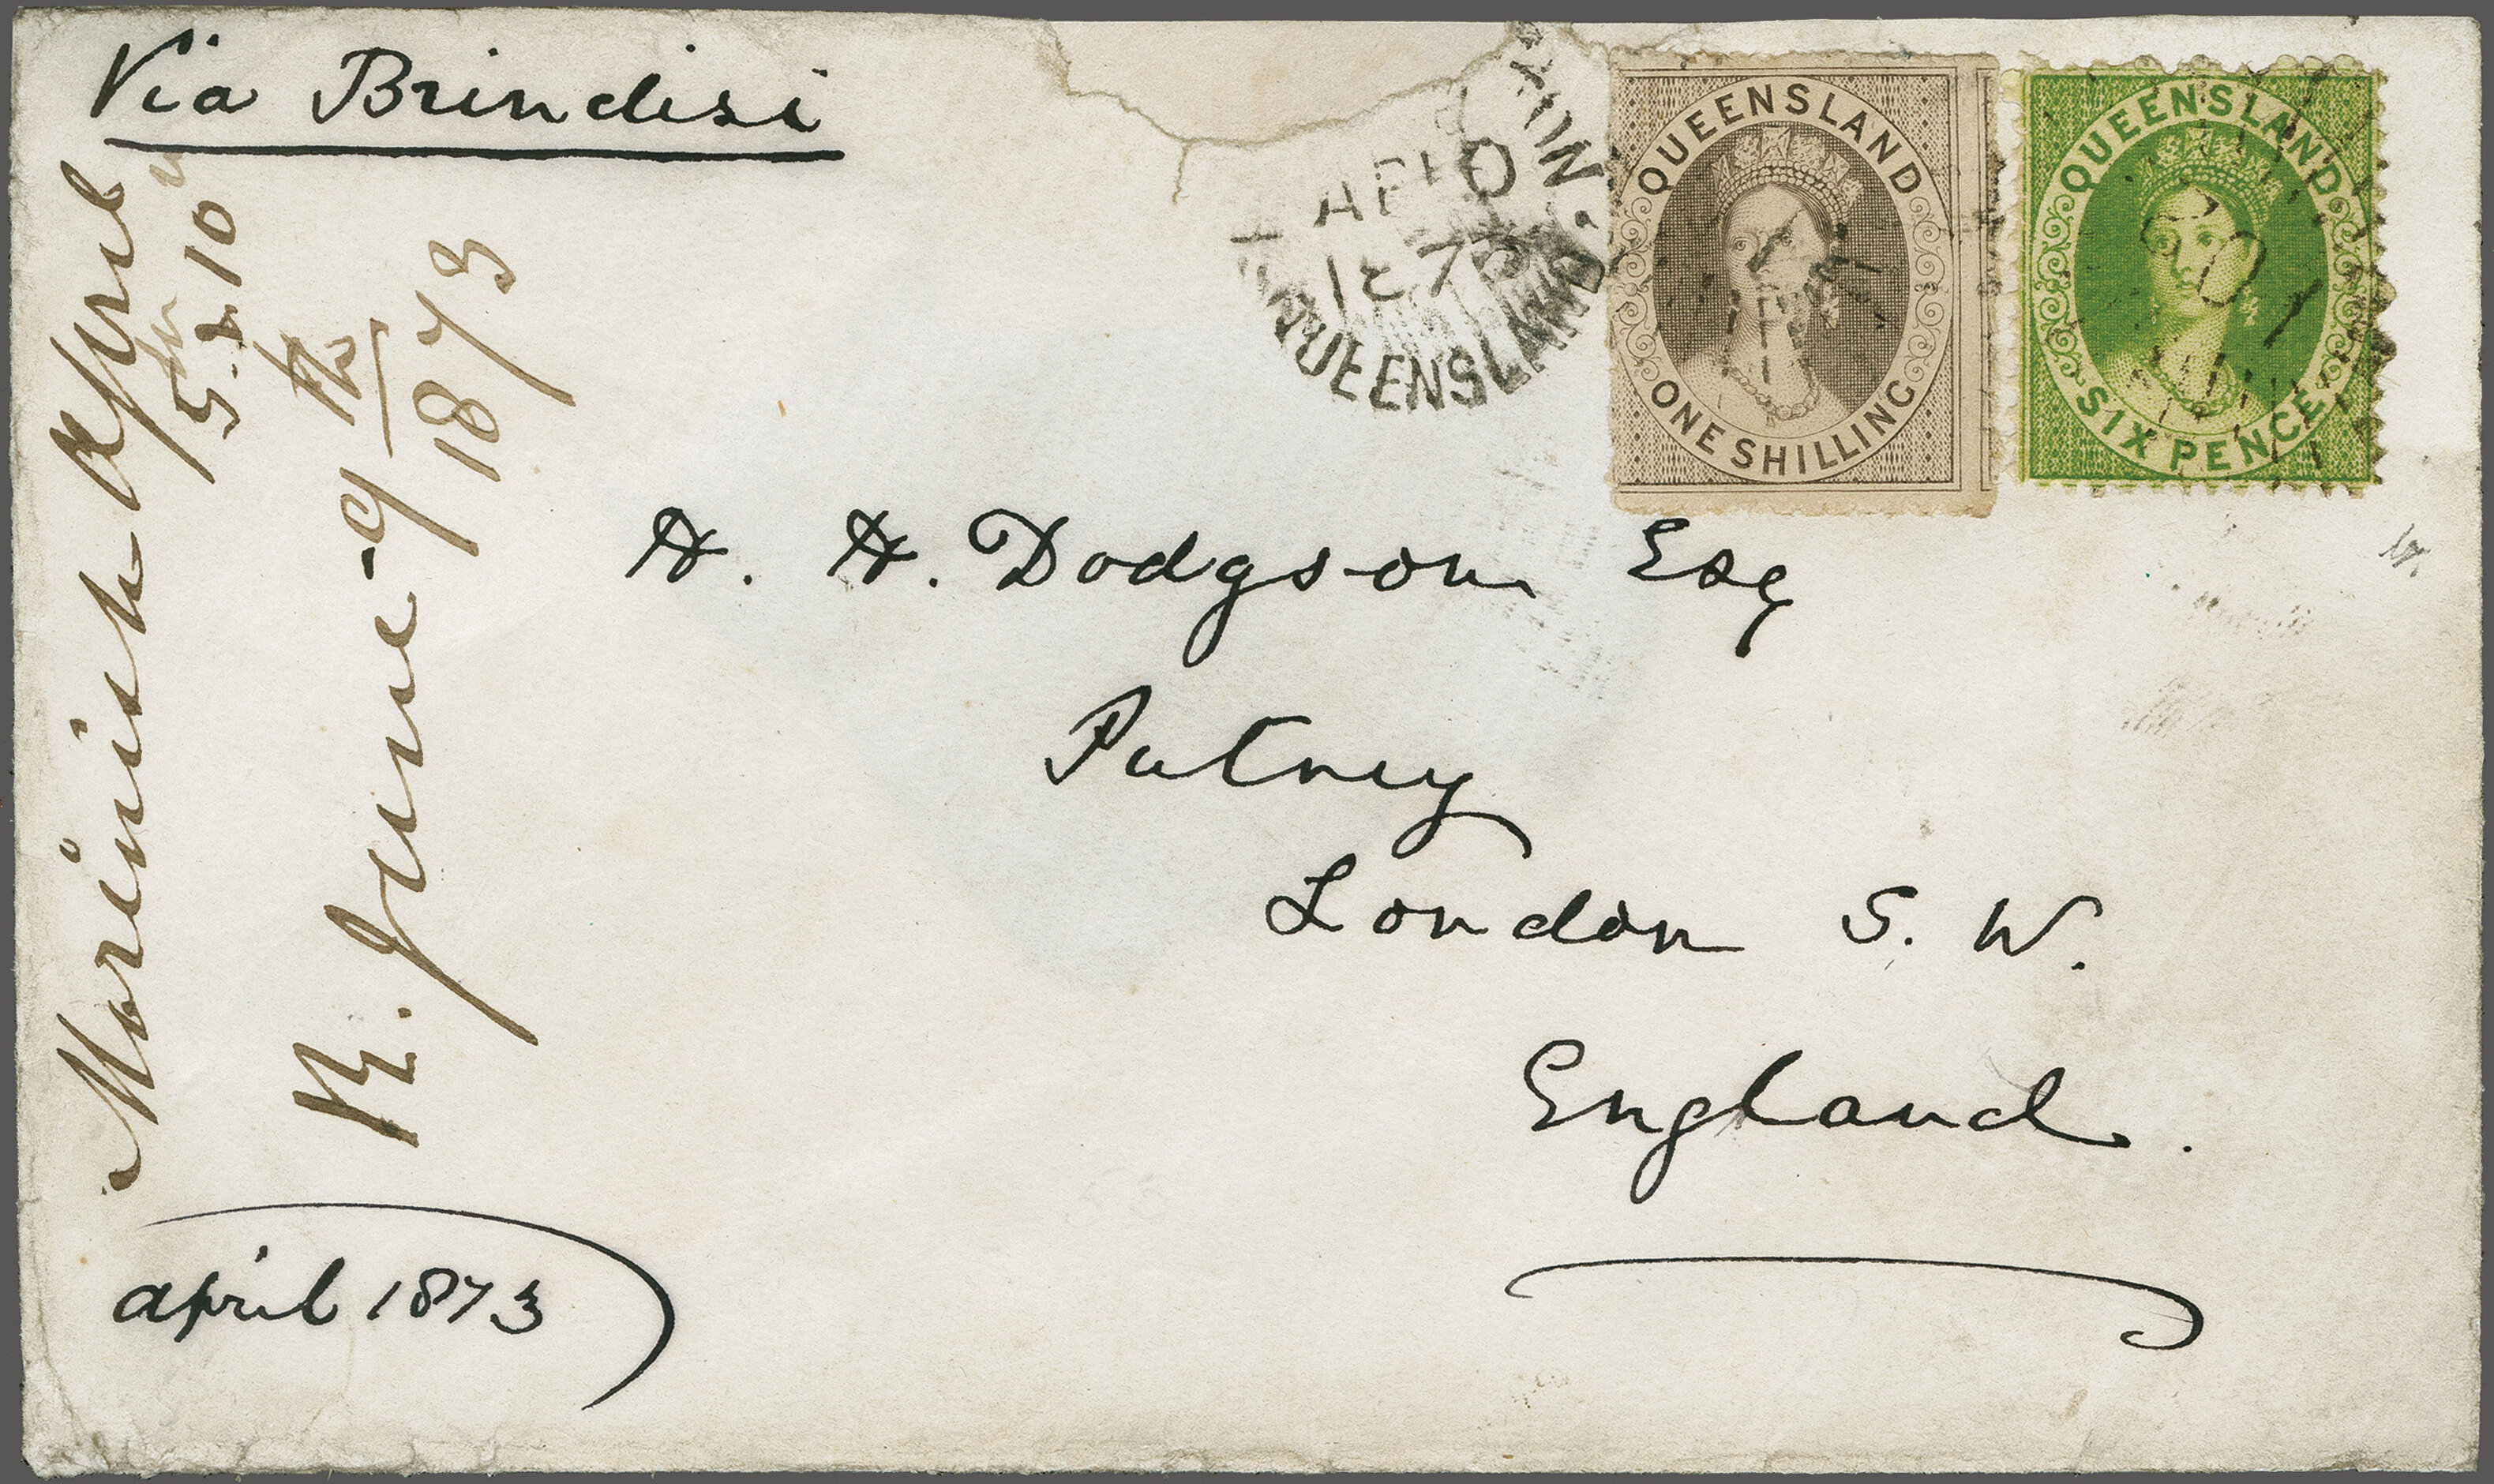 Via Brindisi
QUEENSLAND
ONE SHILLING
QUEENSLAND
SIX PENCE
201
AP 10
1873
QUEENSLAND
H. H. Dodgson Esq
Putney
London S. W.
England.
Morinish April
5. & 10
R. June 9th
1873
april 1873